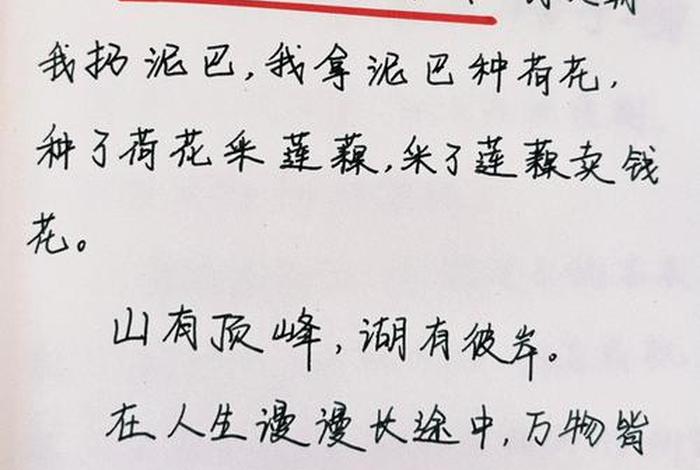 我扔泥巴,我拿泥巴种荷花,
种了荷花采莲藕,采了莲藕卖钱
花。
山有顶峰,湖有彼岸。
在人生漫漫长途中,万物皆